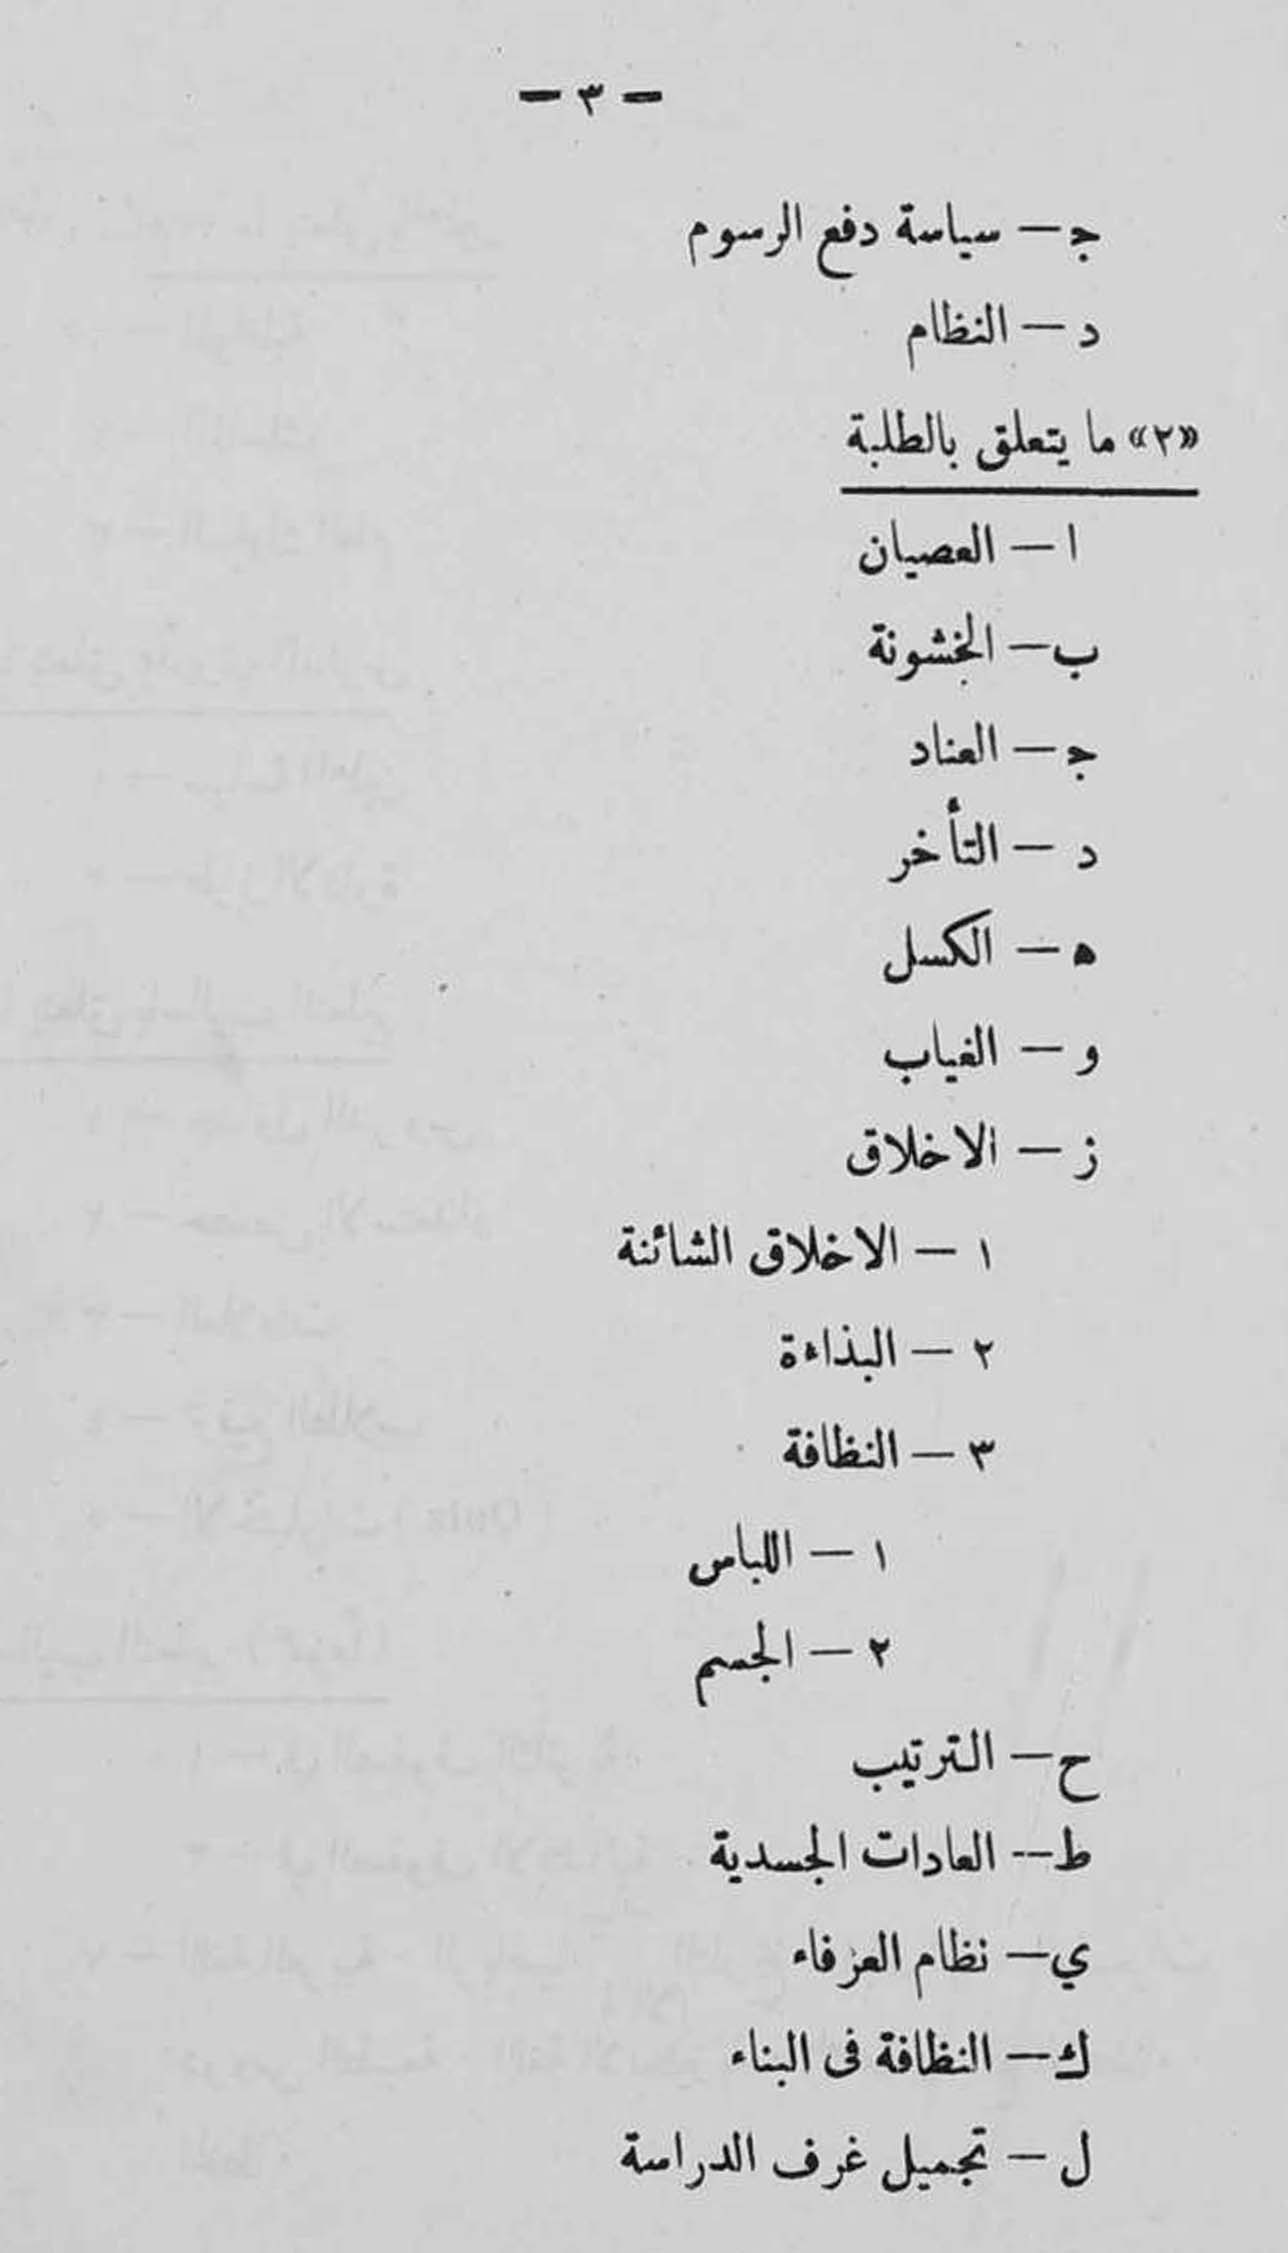 - ٣ -
ج — سياسة دفع الرسوم
د — النظام
«٢» ما يتعلق بالطلبة
ا — العصيان
ب — الخشونة
ج — العناد
د — التأخر
ه — الكسل
و — الغياب
ز — الاخلاق
١ — الاخلاق الشائنة
٢ — البذاءة
٣ — النظافة
١ — اللباس
٢ — الجسم
ح — الترتيب
ط — العادات الجسدية
ي — نظام العرفاء
ك — النظافة في البناء
ل — تجميل غرف الدراسة